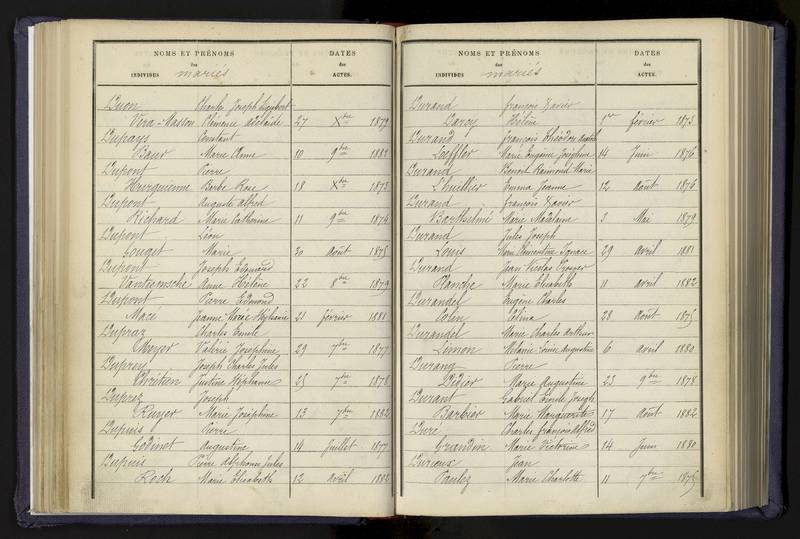 NOMS ET PRÉNOMS
des
INDIVIDUS mariés
DATES
des
ACTES.
Duon Charles Joseph
Vera-Masson Clémence Adélaïde 27 Xbre 1879
Dupays Constant
Baur Marie Anne 10 9bre 1881
Dupont Pierre
Hurguenne Barbe Rose 18 Xbre 1873
Dupont Auguste Alfred
Richard Marie Catherine 11 9bre 1874
Dupont Léon
Gouget Marie 30 août 1875
Dupont Joseph Edouard
Vantuensche Anne Hélène 22 8bre 1879
Dupont Pierre Edmond
Macé Jeanne Marie Stéphanie 21 février 1881
Dupraz Charles Emile
Meyer Valérie Joséphine 29 7bre 1877
Duprey Joseph Charles Jules
Chrétien Justine Stéphanie 25 7bre 1878
Dupraz Joseph
Ruyer Marie Joséphine 13 7bre 1882
Dupuis Pierre
Godinot Augustine 14 Juillet 1877
Dupuis Pierre Alphonse Jules
Roch Marie Elisabeth 12 avril 1882
NOMS ET PRÉNOMS
des
INDIVIDUS mariés
DATES
des
ACTES.
Durand François Xavier
Darcy Hélène 1er février 1873
Durand François Théodore
Loeffler Marie Eugénie Joséphine 14 Juin 1876
Durand Benoit Raimond Marie
Lhuillier Emma Jeanne 12 août 1876
Durand François Xavier
Barthélmé Marie Madelaine 3 Mai 1879
Durand Jules Joseph
Louis Marie Clémentine Ignace 29 avril 1881
Durand Jean Nicolas Prosper
Planche Marie Elisabeth 11 avril 1882
Durandel Eugène Charles
Colin Célina 28 août 1875
Durandel Marie Charles Arthur
Lemon Mélanie Louise Augustine 6 avril 1880
Durang Pierre
Didier Marie Augustine 23 9bre 1878
Durant Gabriel Emile Joseph
Barbier Marie Marguerite 17 août 1882
Duré Charles François Alfred
Grandin Marie Victorine 14 Juin 1880
Durieux Jean
Paulez Marie Charlotte 11 7bre 1875